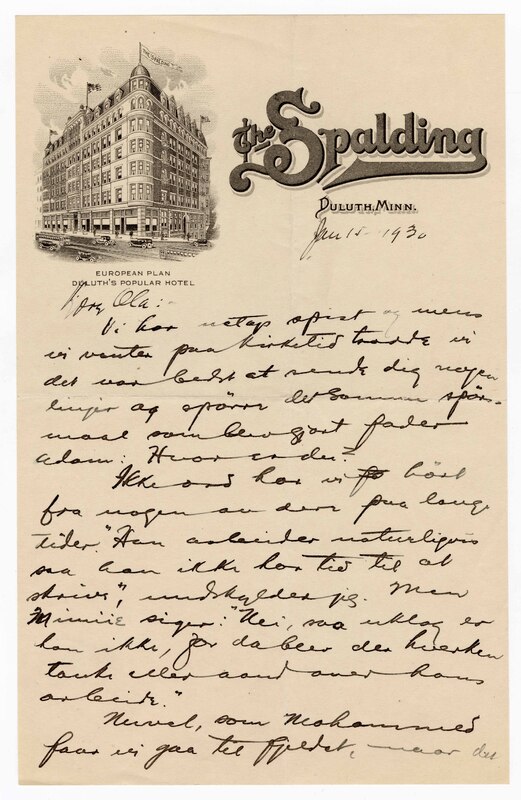 The Spalding
DULUTH, MINN.
Jan 15 1930
EUROPEAN PLAN
DULUTH'S POPULAR HOTEL
Kjære Ola:-
Vi har netop spist og mens
vi venter paa kirketid trodde vi
det var bedst at sende dig nogen
linjer og spörre det samme spörs-
maal som blev gjort fader
Adam: Hvor er du?
Ikke ord har vi hört
fra nogen av dere paa lange
tider. "Han arbeider naturligvis
saa han ikke har tid til at
skrive", undskylder jeg. Men
Minnie siger: "Nei, saa uklog er
han ikke, for da blir der hverken
tanke eller aand over hans
arbeide."
Nuvel, som Mohammed
faar vi gaa til fjeldet, naar det